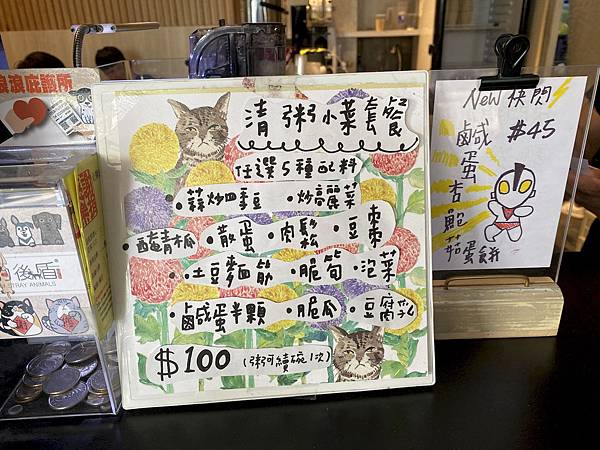 清粥小菜套餐
任選5種配料
·蒜炒四季豆 ·炒高麗菜
·醋青木瓜 ·散蛋 ·肉鬆 ·豆棗
·土豆麵筋 ·脆筍 ·泡菜
·鹹蛋半顆 ·脆瓜 ·豆腐乳
$100 (粥可續碗1次)
New 快閃
$45
鹹蛋杏鮑菇蛋餅
浪浪庇護所
後盾
STRAY ANIMALS